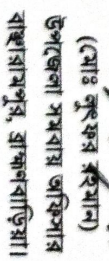 (মোঃ লুৎফর রহমান)
উপজেলা সমবায় অফিসার
বাঞ্ছারামপুর, ব্রাহ্মণবাড়িয়া।